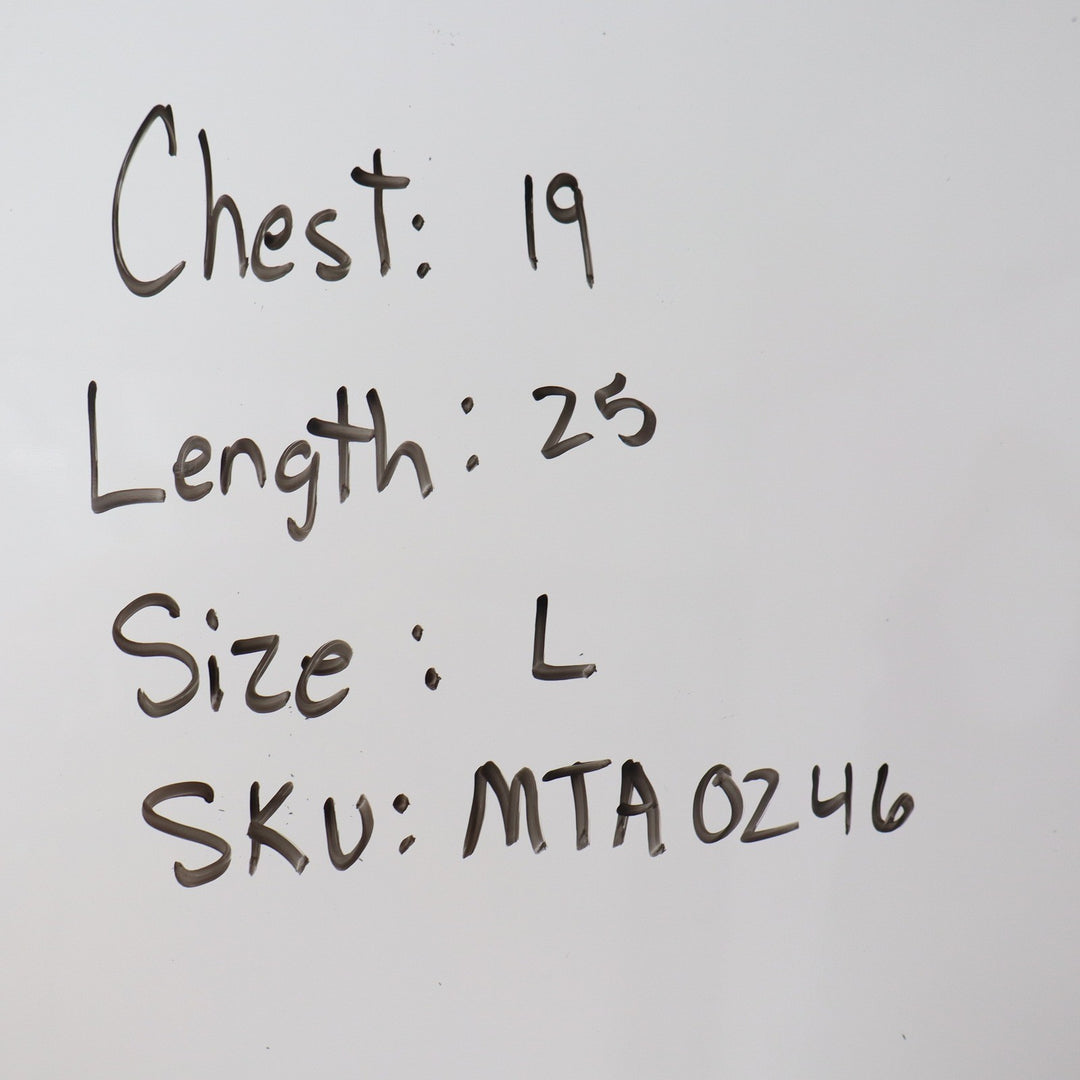 Chest: 19
Length: 25
Size: L
SKU: MTA0246